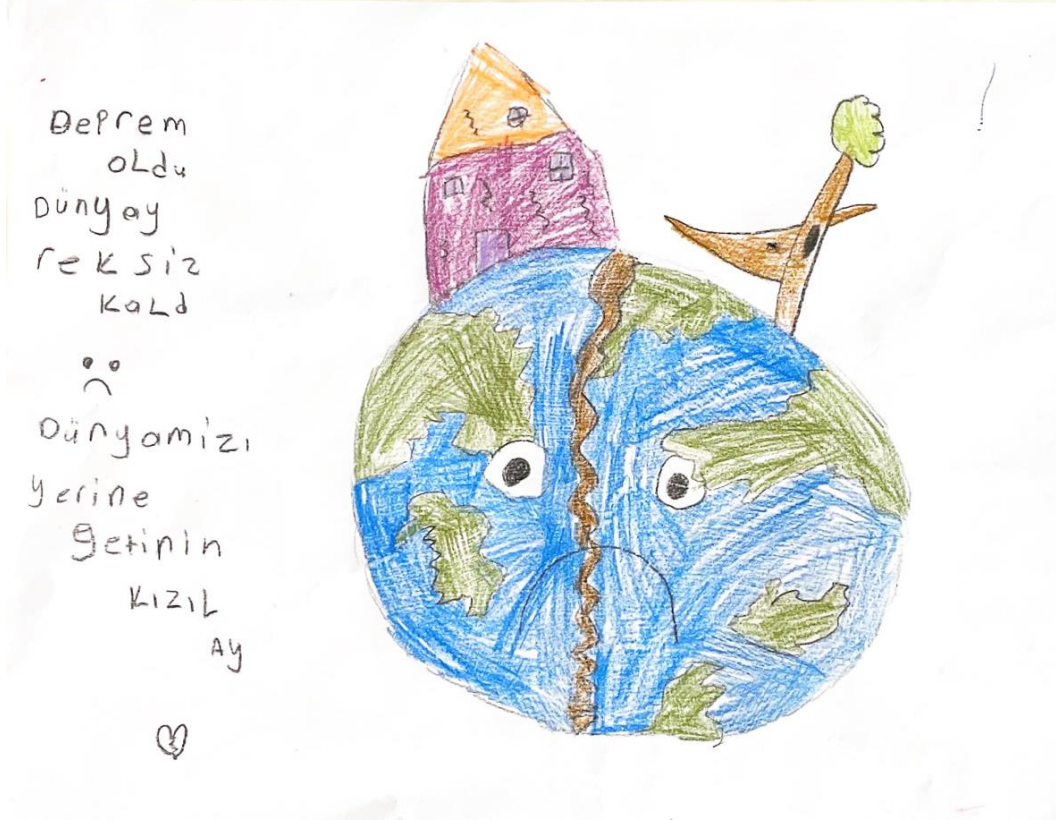 Deprem
oldu
Dünyay
reksiz
kald
Dünyamızı
yerine
getinin
Kızıl
Ay